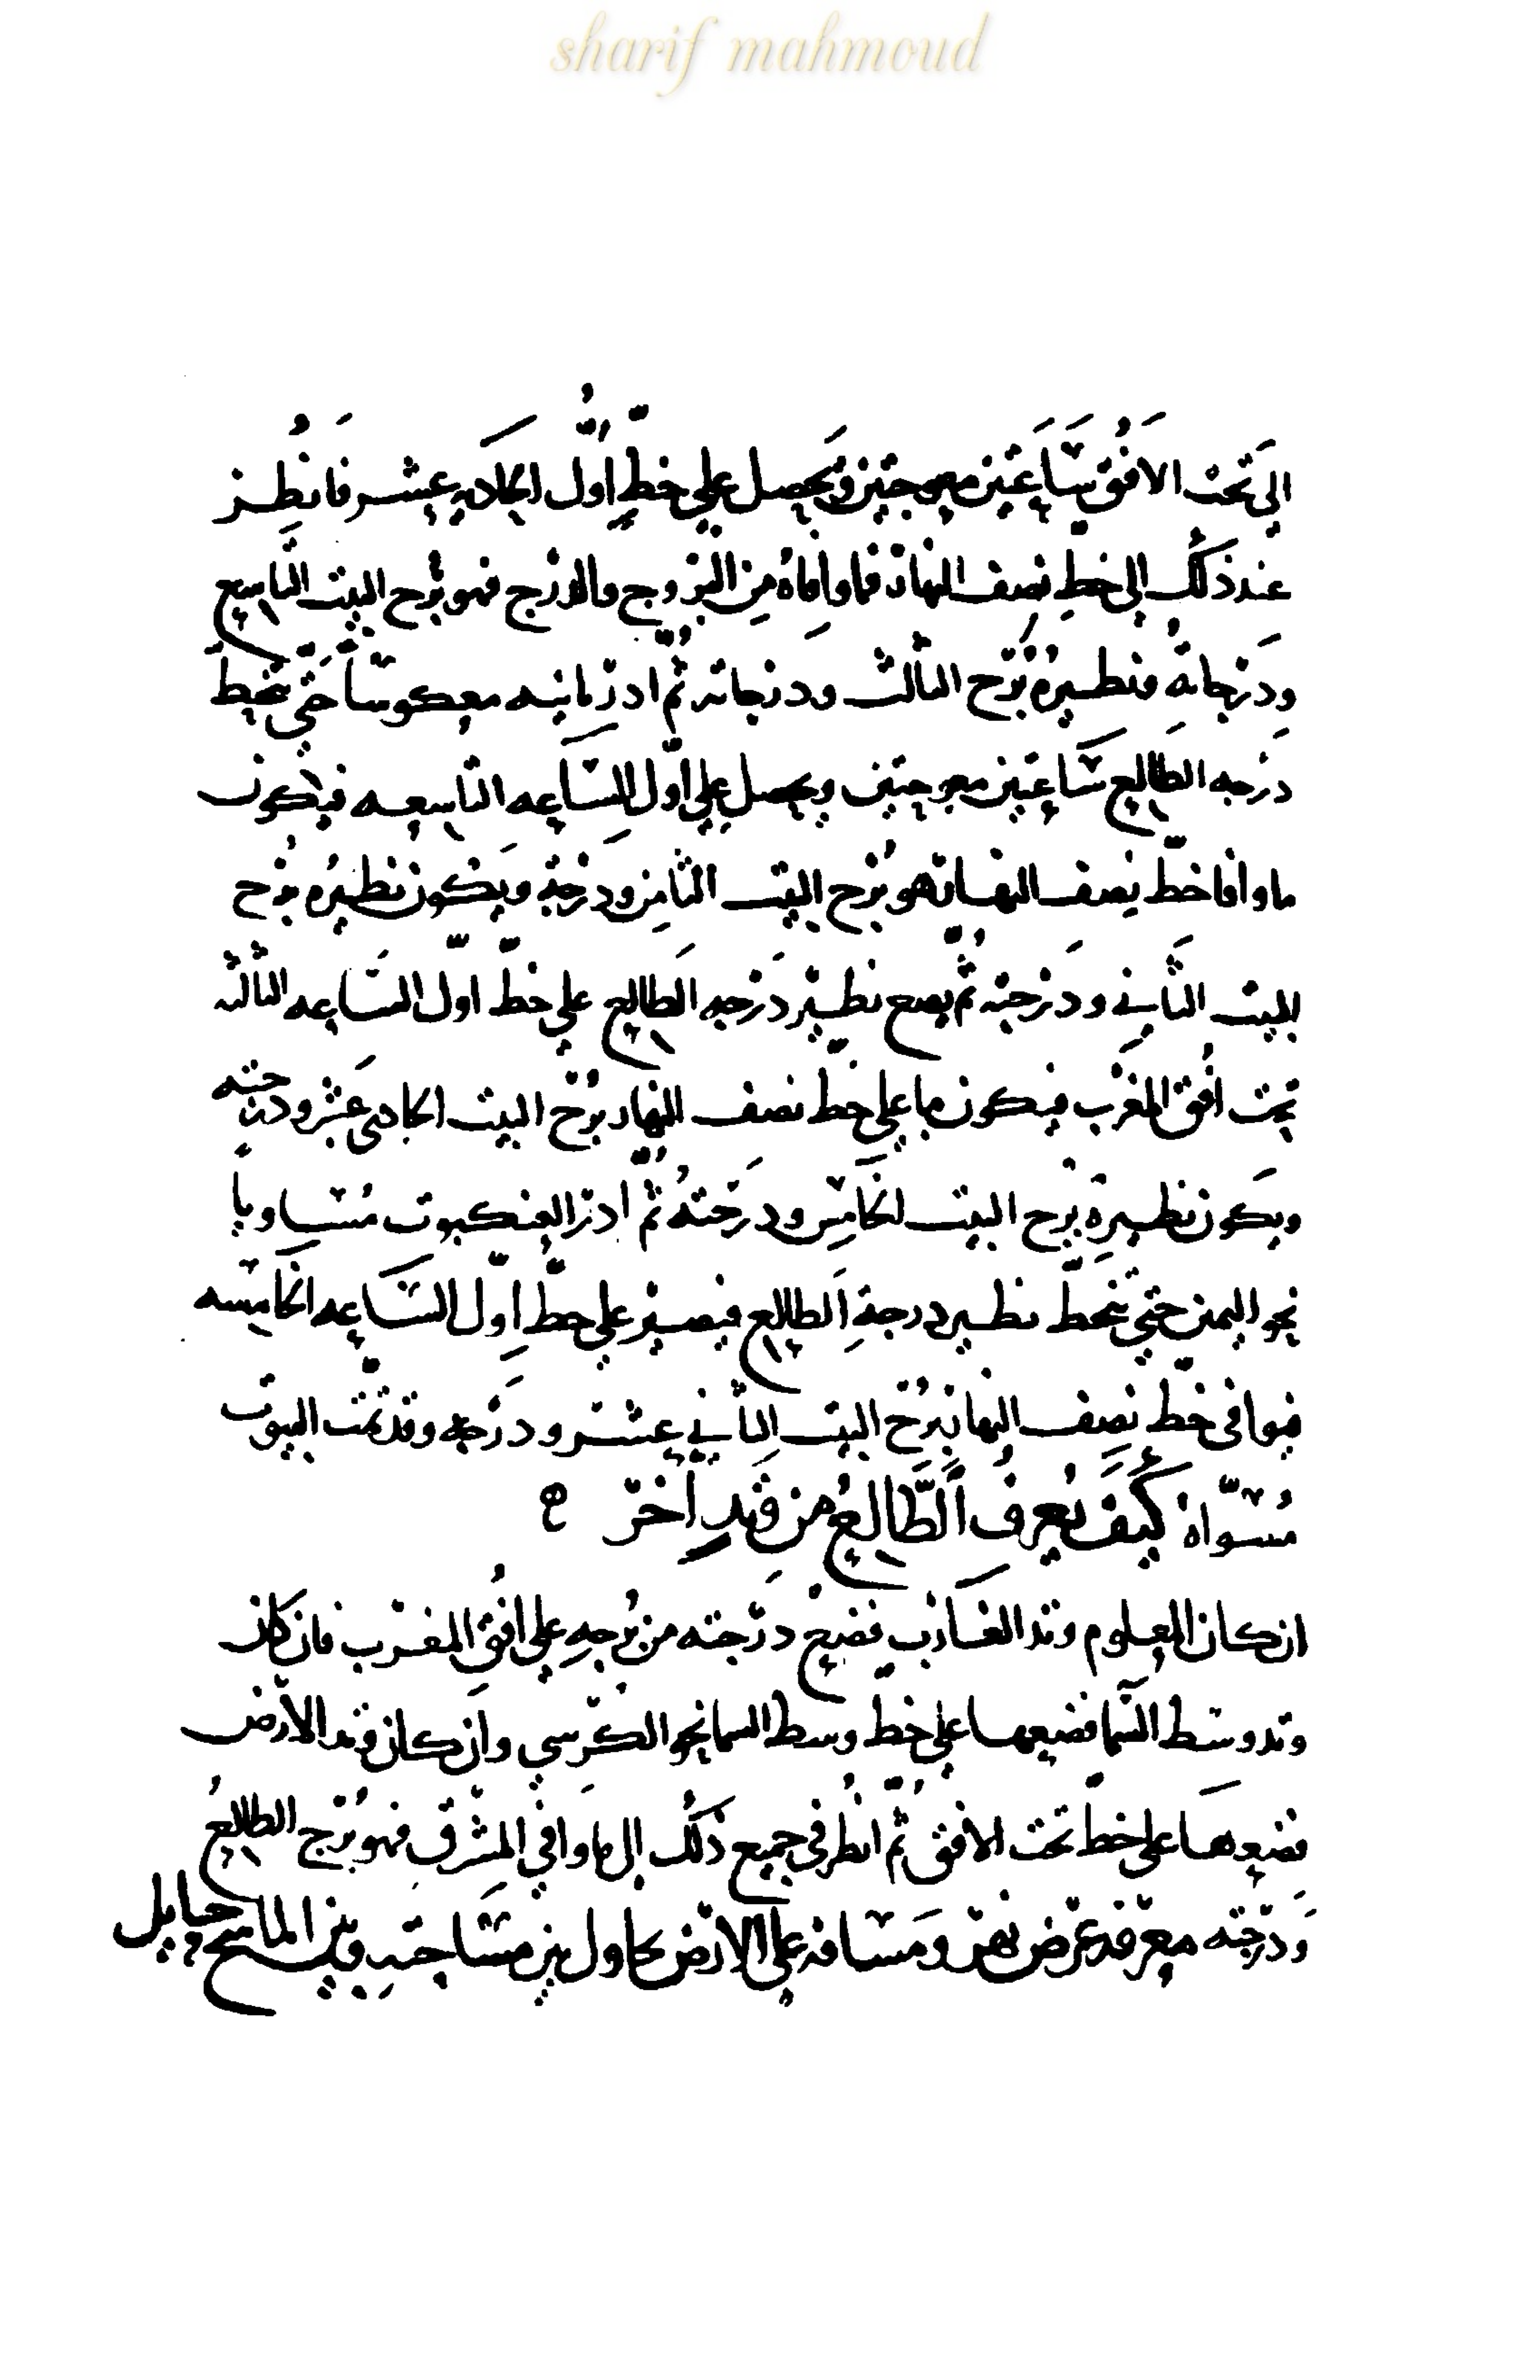 sharif mahmoud
الى تحت الافق ساعتين معوجتين ويحصل على خط اول الحاديه عشر فانظر
عند ذلك الى خط نصف النهار فما وافاه من البروج والدرج فهو برج البيت التاسع
ودرجاته ونظيره برج الثالث ودرجاته ثم ادر ثانيه معكوسا حتى تحط
درجه الطالع ساعتين معوجتين ويحصل على اول الساعه التاسعه فيكون
ما وافا خط نصف النهار هو برج البيت الثامن ودرجته ويكون نظيره برج
البيت الثاني ودرجته ثم يضع نظير درجه الطالع على خط اول الساعه الثالثه
تحت افق المغرب فيكون ما على خط نصف النهار برج البيت الحادى عشر ودرجته
ويكون نظيره برج البيت الخامس ودرجته ثم ادر العنكبوت مساويا
نحو اليمين حتى تنحط نظير درجة الطالع فيصير على خط اول الساعه الخامسه
فيوافى خط نصف النهار برج البيت الثاني عشر ودرجه وقد تمت البيوت
مسواة كيف يعرف الطالع من وتد اخر
ان كان المعلوم وتد الغارب فضع درجته من برجه على افق المغرب فان كان
وتد وسط السما فضعها على خط وسط السما نحو الكرسي وان كان وتد الارض
فضعها على خط تحت الافق ثم انظر في جميع ذلك الى ما وافى المشرق فهو برج الطالع
ودرجته معرفه عرض نهر ومسافه على الارض يحاول بين مساحته وبين الماسح حايل